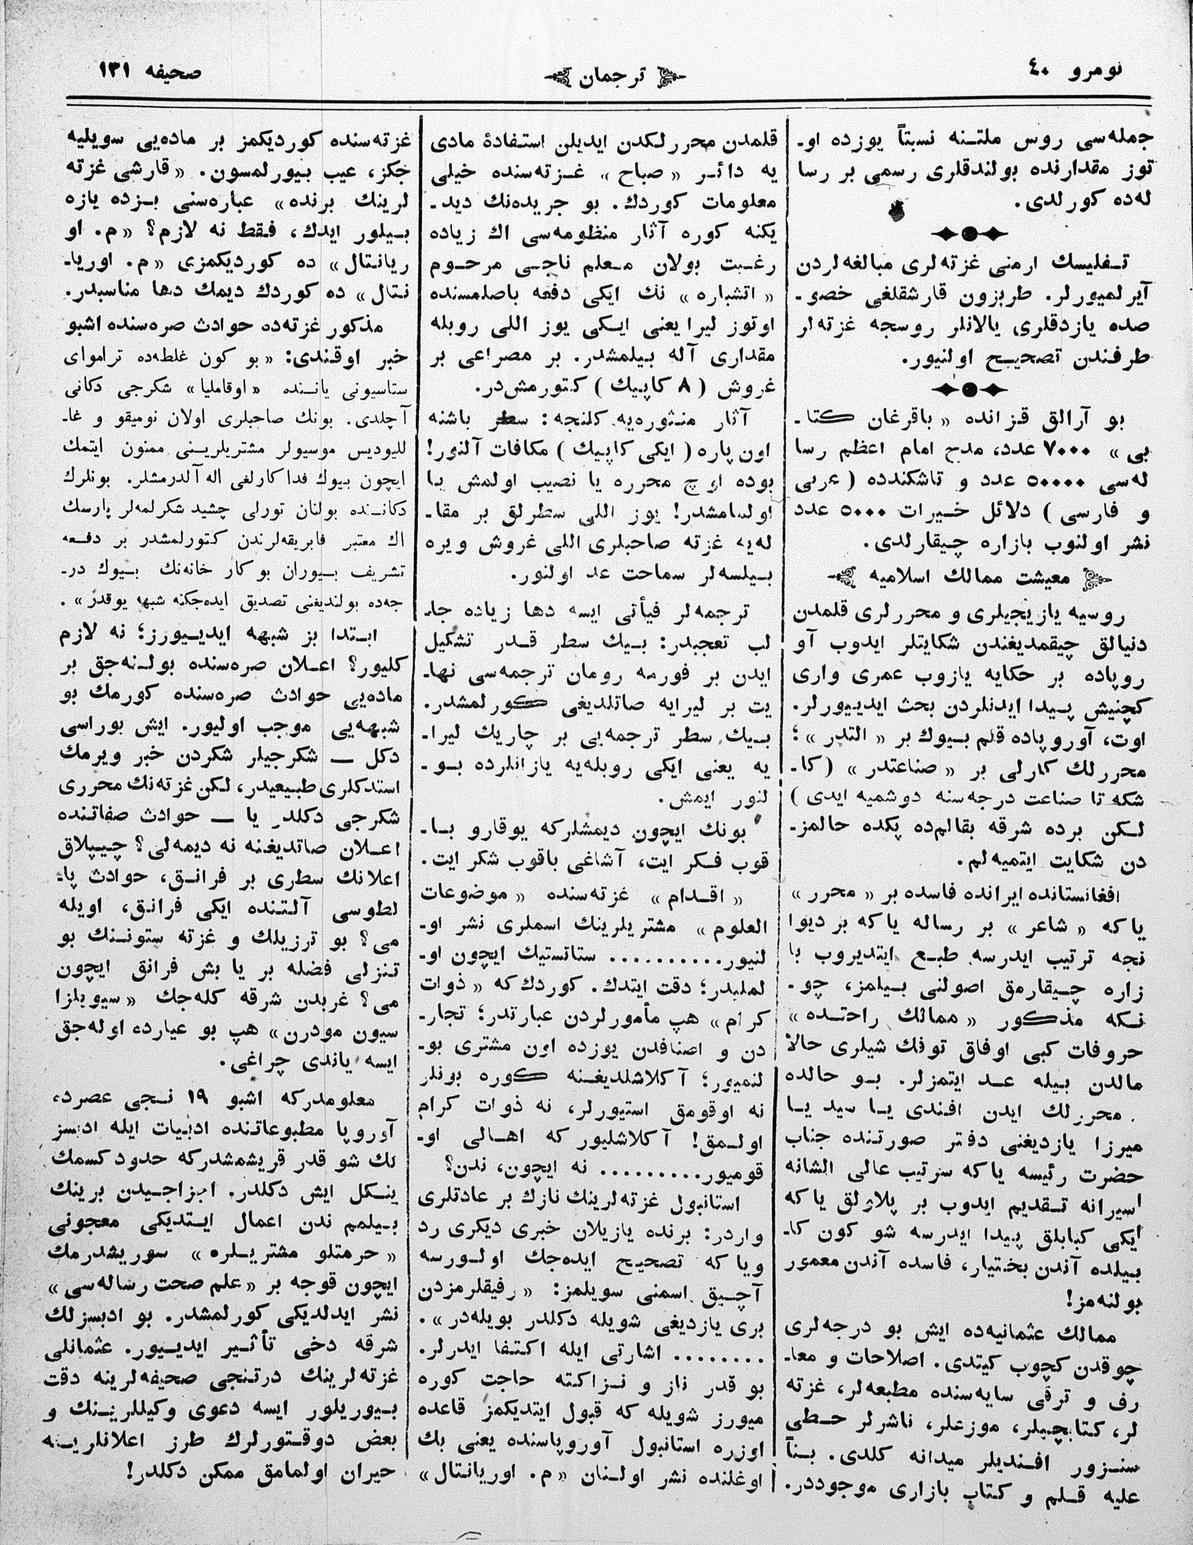 نومرو ٤٠
ترجمان
صحیفه ١٣١
جمله‌سی روس ملتـنه نسبتاً یوزده او‍ـ
توز مقدارنده بولندقلری رسمی بر رسا
له‌ده کورلدی.
تـفلیسك ارمنی غزته‌لری مبالغه‌لردن
آیرلمیورلر. طربزون قارشقلغی خصو‍ـ
صده یازدقلری یالانلر روسجه غزته‌لر
طرفندن تصحیـح اولنیور.
بو آرالق قزانده «باقرغان کتا‍ـ
بی» ٧٠٠٠ عدد، مدح امام اعظم رسا
له‌سی ٥٠٠٠٠ عدد و تاشکندده (عربی
و فارسی) دلائل خـیرات ٥٠٠٠ عدد
نشر اولنوب بازاره چـیقارلدی.
معیشت ممالك اسلامیه
روسیه یازیجیلری و محررلری قلمدن
دنیالق چیقمدیغندن شکایتلر ایدوب آو
روپاده بر حکایه یازوب عمری واری
کچنیش پـیدا ایدنلردن بحث ایدیـیورلر.
اوت، آوروپاده قلم بـیوك بر «التدر»؛
محررلك کارلی بر «صناعتدر» (کا‍ـ
شکه تا صناعت درجه‌سنه دوشمیه ایدی)
لـکن برده شرقه بقالم‌ده پکده حالمز‍ـ
دن شکایت ایتمیه‌لم.
افغانستانده ایرانده فاسده بر «محرر»
یاکه «شاعر» بر رساله یاکه بر دیوا
نجه ترتیب ایدرسه طبـع ایتدیروب با
زاره چـیقارمق اصولنی بـیلمز، چو‍ـ
نـکه مذکور «ممالك راحتـده»
حروفات کبی اوفاق توفك شیلری حالا
مالدن بـیله عـد ایتمزلر. بـو حالده
محررلك ایدن افندی یـا سید یـا
میرزا یازدیغنی دفتر صورتـنده جناب
حضرت رئیسه یاکه سرتیب عالی الشانه
اسیرانه تـقدیم ایدوب بر پلاولق یاکه
ایکی کبابلق پـیدا ایدرسه شو کون کا‍ـ
بـیلده آندن بختیار، فاسده آندن معمور
بولنه‌مز!
ممالك عثمانیه‌ده ایش بو درجه‌لری
چوقدن کچوب کیتدی. اصلاحات و معا‍ـ
رف و ترقی سایه‌سنده مطبعه‌لر، غزته
لر، کتابچیلر، موزعلر، ناشرلر حـطی
سنـزور افـندیلر میدانه کلدی. بـنأ
علیه قـلم و کتاب بازاری موجوددر.
قلمدن محررلکدن ایدیلن استفادهٔ مادی
یه دائـر «صباح» غـزته‌سنده خیلی
معلومات کوردك. بو جریده‌نك دید‍ـ
یکنه کوره آثار منظومه‌سی اك زیاده
رغـبت بولان مـعلم ناجـی مرحـوم
«اتشباره» نك ایکی دفعه باصلمسنده
اوتوز لیرا یعنی ایـکی یوز اللی روبله
مقداری آله بـیلمشدر. بر مصراعی بر
غروش (٨ کاپیك) کتورمش‌در.
آثار منـثوره‌یه کلنجه: سطر باشنه
اون پاره (ایکی کاپیك) مکافات آلنور!
بوده اوچ محرره یا نصیب اولمش یـا
اولمامشدر! یوز اللی سطرلق بر مقا‍ـ
له‌یه غزته صاحبلری اللی غروش ویره
بـیلسه‌لر سماحت عد اولنور.
ترجمه‌لر فیأتی ایسه دها زیاده جا‍ـ
لب تعجبدر: بـیك سطر قـدر تشکیل
ایدن بر فورمه رومان ترجمه‌سی نها‍ـ
یت بر لیرایه صاتلدیغی کورلمشدر.
بـیك سطر ترجمه‌یی بر چاریك لیرا‍ـ
یه یعنی ایکی روبله‌یه یازانلرده بـو‍ـ
لنور ایمش.
بونك ایچون دیمشلرکه یوقارو بـا‍ـ
قوب فـکر ایت، آشاغی باقوب شکر ایت.
«اقـدام» غزته‌سنده «موضوعات
العلوم» مشتریلرینك اسملری نشر او‍ـ
لنیور.......... ستاتستیك ایچون او‍ـ
لملیدر؛ دقت ایتدك. کوردك‌که «ذوات
کرام» هپ مأمورلردن عبارتدر؛ تجار‍ـ
دن و اصنافدن یوزده اون مشتری بو‍ـ
لنمیور؛ آکلاشلدیغـنه کوره بونلر
نه اوقومق استیورلر، نه ذوات کرام
اولـمق! آکلاشلیور که اهـالی او‍ـ
قومیور......... نه ایچون، ندن؟
استانبول غزته‌لرینك نازك بر عادتلری
واردر: برنده یازیلان خبری دیکری رد
ویاکه تصحیـح ایده‌جك اولـورسه
آچـیق اسمنی سویلمز: «رفیقلرمزدن
بری یازدیغی شویله دکلدر بویله‌در».
........ اشارتی ایله اکتـفا ایدرلر.
بو قدر ناز و نـزاکته حاجت کوره
میورز شویله که قبول ایتدیکمز قاعده
اوزره استانبول آوروپاسنده یعنی بك
اوغلنده نشر اولـنان «م. اوریانـتال»
غزته‌سنده کوردیکمز بر ماده‌یی سویلیه
جکز، عیب بـیورلمسون. «قارشی غزته
لرینك برنده» عباره‌سنی بـزده یازه
بـیلور ایدك، فـقط نه لازم؟ «م. او
ریانـتال» ده کوردیکمزی «م. اوریا‍ـ
نـتال» ده کوردك دیمك دها مناسبدر.
مذکور غزته‌ده حوادث صره‌سنده اشبو
خبر اوقندی: «بو کون غلطه‌ده تراموای
ستاسیونی یاننده «اوقاملیا» شکرجی دکانی
آچلدی. بونك صاحبلری اولان نومیقو و غا‍ـ
للیودیس موسیولر مشتریلریـنی ممنون ایتمك
ایچون بـیوك فدا کارلغی اله آلدرمشلر. بونلرك
دکانـنده بولنان تورلی چشید شکرلمه‌لر پارسك
اك معتبر فابریقه‌لرندن کتورلمشدر بر دفـعه
تشریف بـیوران بو کار خانه‌نك بـیوك در‍ـ
جه‌ده بولندیغنی تصدیق ایده‌جکنه شبهه یوقدر».
ابـتدا بز شبهه ایدیـیورز؛ نه لازم
کلیور؟ اعـلان صره‌سنده بولـنه‌جق بر
ماده‌یی حوادث صره‌سنده کورمك بو
شبهه‌یی موجب اولیور. ایش بوراسی
دکل — شکرجیلر شکردن خبر ویرمك
استدکلری طبـیعیدر، لکن غزته‌نك محرری
شکرجی دکلدر یا — حوادث صفاتـنده
اعـلان صاتدیغنه نه دیمه‌لی؟ چـیپلاق
اعلانك سطری بر فرانـق، حوادث پا‍ـ
لطوسی آلـتنده ایکی فرانق، اویله
می؟ بو ترزیلك و غزته ستونـنك بو
تـنزلی فضله بر یا بش فرانق ایچون
می؟ غربدن شرقه کله‌جك «سیویلزا
سیون مودرن» هپ بو عیارده اوله‌جق
ایسه یاندی چراغی.
معلومدرکه اشبو ١٩ نـجی عصرد،
آوروپا مطبوعاتنده ادبـیات ایله ادبسز
لك شو قدر قریشمشدرکه حدود کسمك
ینـکل ایش دکلدر. اجزاجـیدن برینك
بـیلمم ندن اعمال ایـتدیکی معجونی
«حرمتلو مشتریـلره» سوریشدرمك
ایچون قوجه بر «علم صحت رساله‌سی»
نشر ایدلدیکی کورلمشدر. بو ادبسزلك
شرقه دخی تأثـیر ایدیـیور. عثمانلی
غزته‌لرینك درتـنجی صحیفه‌لرینه دقت
بـیوریلور ایسه دعوی وکیللریـنك و
بعض دوقـتورلرك طرز اعلانلریـنه
حیران اولمامق ممکن دکلدر!